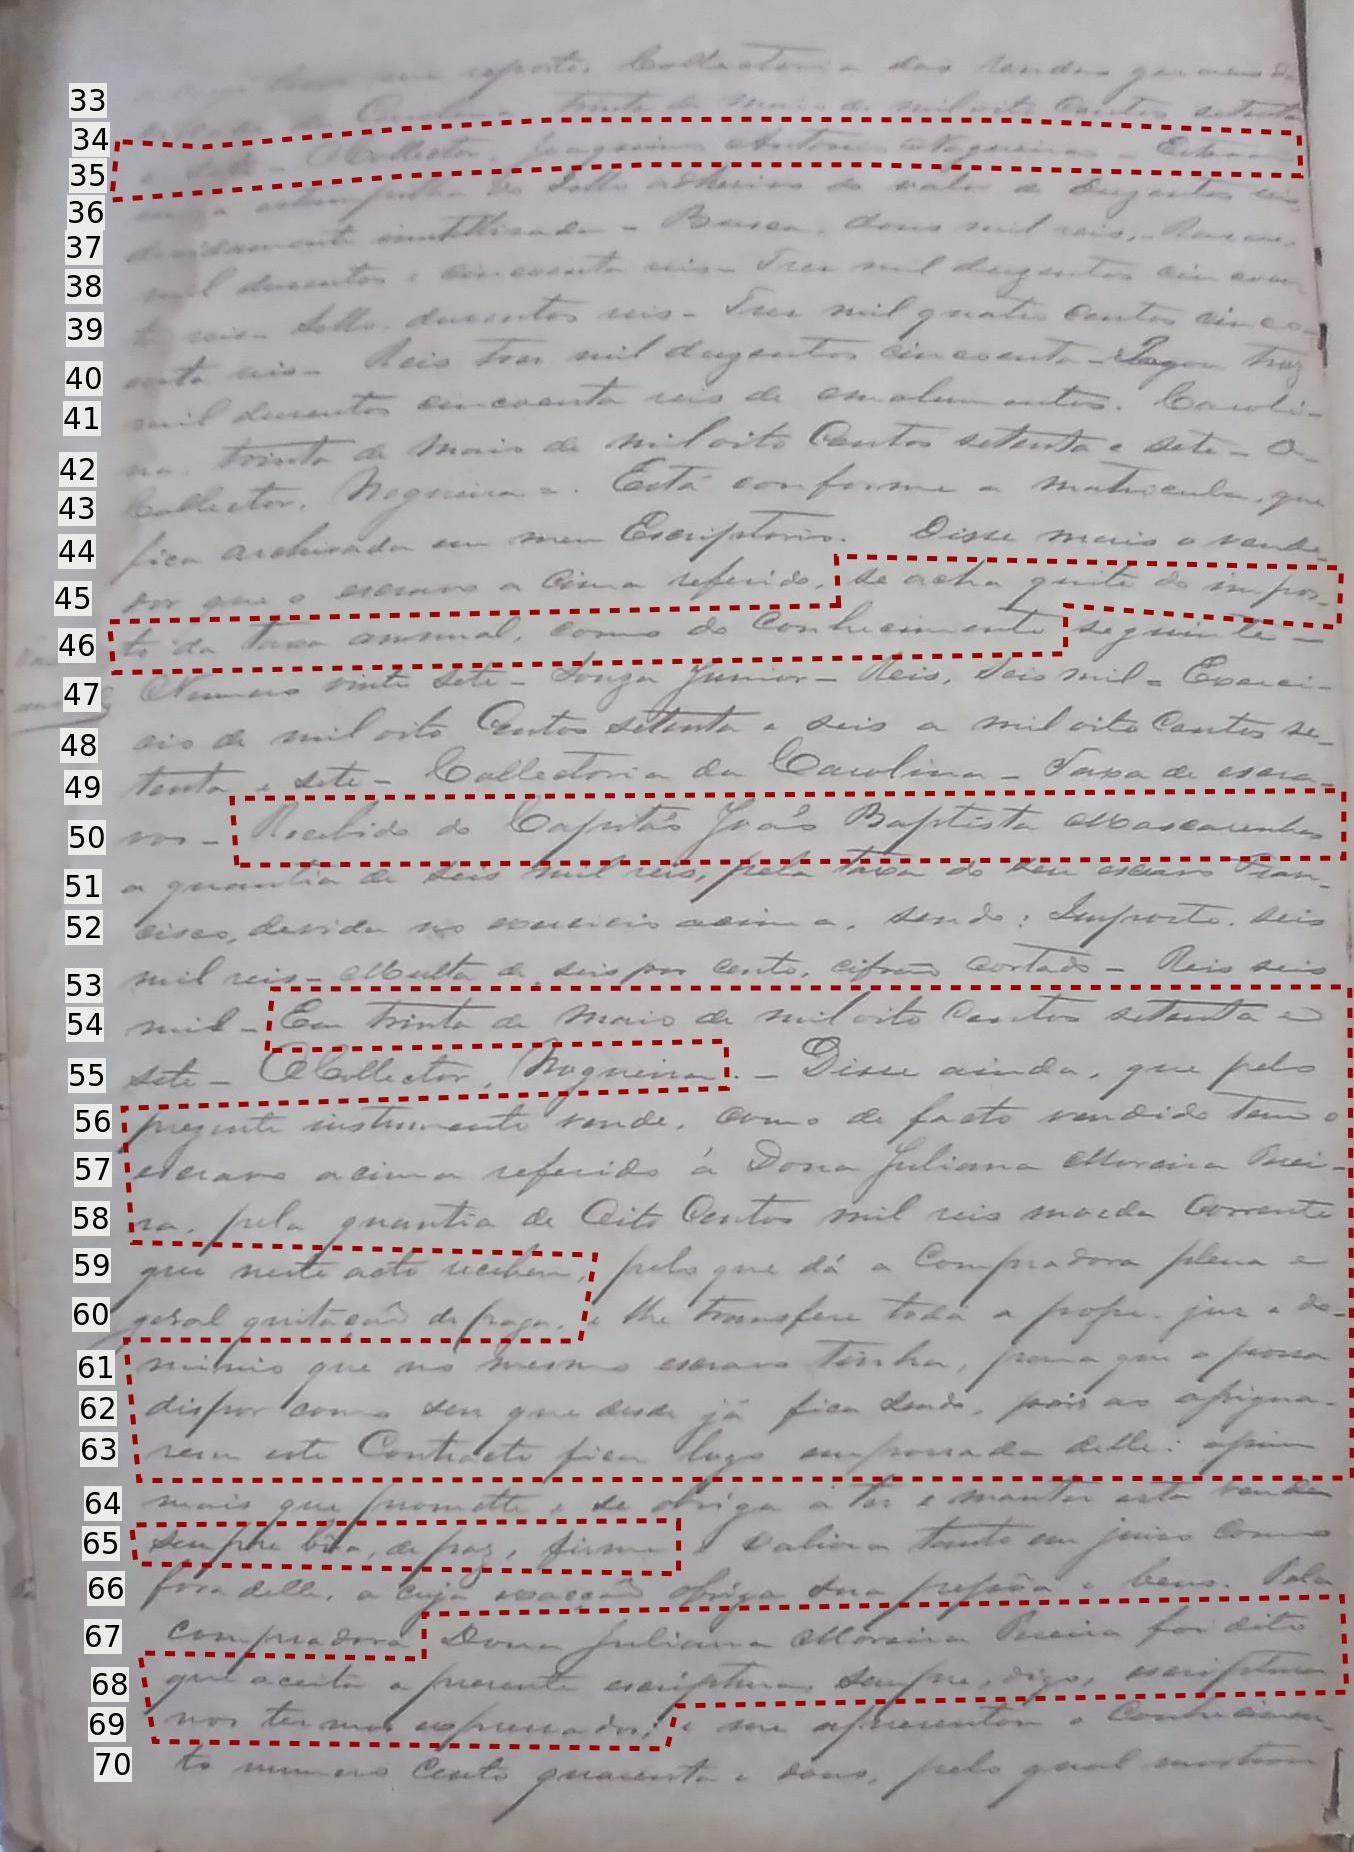 33 reporto. Collectoria das rendas geraes da
34 Carolina trinta de Maio de mil oito Centos setenta
35 e sete - O Collector, Joaquim Antonio Nogueira - Estava
36 estampilha do Sello adhesivo do valor de duzentos reis,
37 devidamente inutillisada - Busca, dous mil reis, - Raza
38 mil duzentos e cincoenta reis - Tres mil duzentos cincoen
39 ta reis - Sello, duzentos reis - Tres mil quatro Centos cinco-
40 enta reis - Reis tres mil duzentos cincoenta - Pagou trez
41 mil duzentos cincoenta reis de emolumentos. Caroli-
42 na, trinta de Maio de mil oito Centos setenta e sete - O
43 Collector, Nogueira =. Está conforme a matricula, que
44 fica archivada em meu Escriptorio. Disse mais o vende-
45 dor que o escravo a cima referido, se acha quite do impos-
46 to da taxa annual, como do Conhecimento seguinte -
47 Numero vinte sete - Souza Junior - Reis, Seis mil = Exerci-
48 cio de mil oito Centos setenta e seis a mil oito Centos se-
49 tenta e sete - Collectoria da Carolina - Taxa de escra-
50 vos - Recebido do Capitão João Baptista Mascarenhas
51 a quantia de seis mil reis, pela taxa do seu escravo Fran-
52 cisco, devida no exercicio acima, sendo: Imposto, seis
53 mil reis - Multa de seis por cento, cifrão cortado - Reis seis
54 mil - Em trinta de Maio de mil oito Centos setenta e
55 sete - O Collector, Nogueira. - Disse ainda, que pelo
56 prezente instrumento vende, como de facto vendido tem o
57 escravo acima referido á Dona Juliana Moreira Perei-
58 ra, pela quantia de Oito Centos mil reis moeda Corrente
59 que neste acto recebem, pelo que dá a Compradora plena e
60 geral quitação de paga, e lhe transfere toda a posse. jus e do-
61 minio que no mesmo escravo tinha, para que o possa
62 dispor como seu que desde já fica sendo, pois ao assigna-
63 rem este Contracto fica logo empossada delle: assim
64 mais que promette e se obriga a ter e manter esta venda
65 sempre bôa, de paz, firme e valiosa tanto em juiso como
66 fora delle, a cuja obriga sua pessôa e bens. Pela
67 compradora Dona Juliana Moreira Pereira foi dito
68 que aceita a presente escriptura, sempre, digo, escriptura
69 nos termos expressados; e me apresentou o Conhecimen-
70 to numero Cento quarenta e dous, pelo qual mostrou